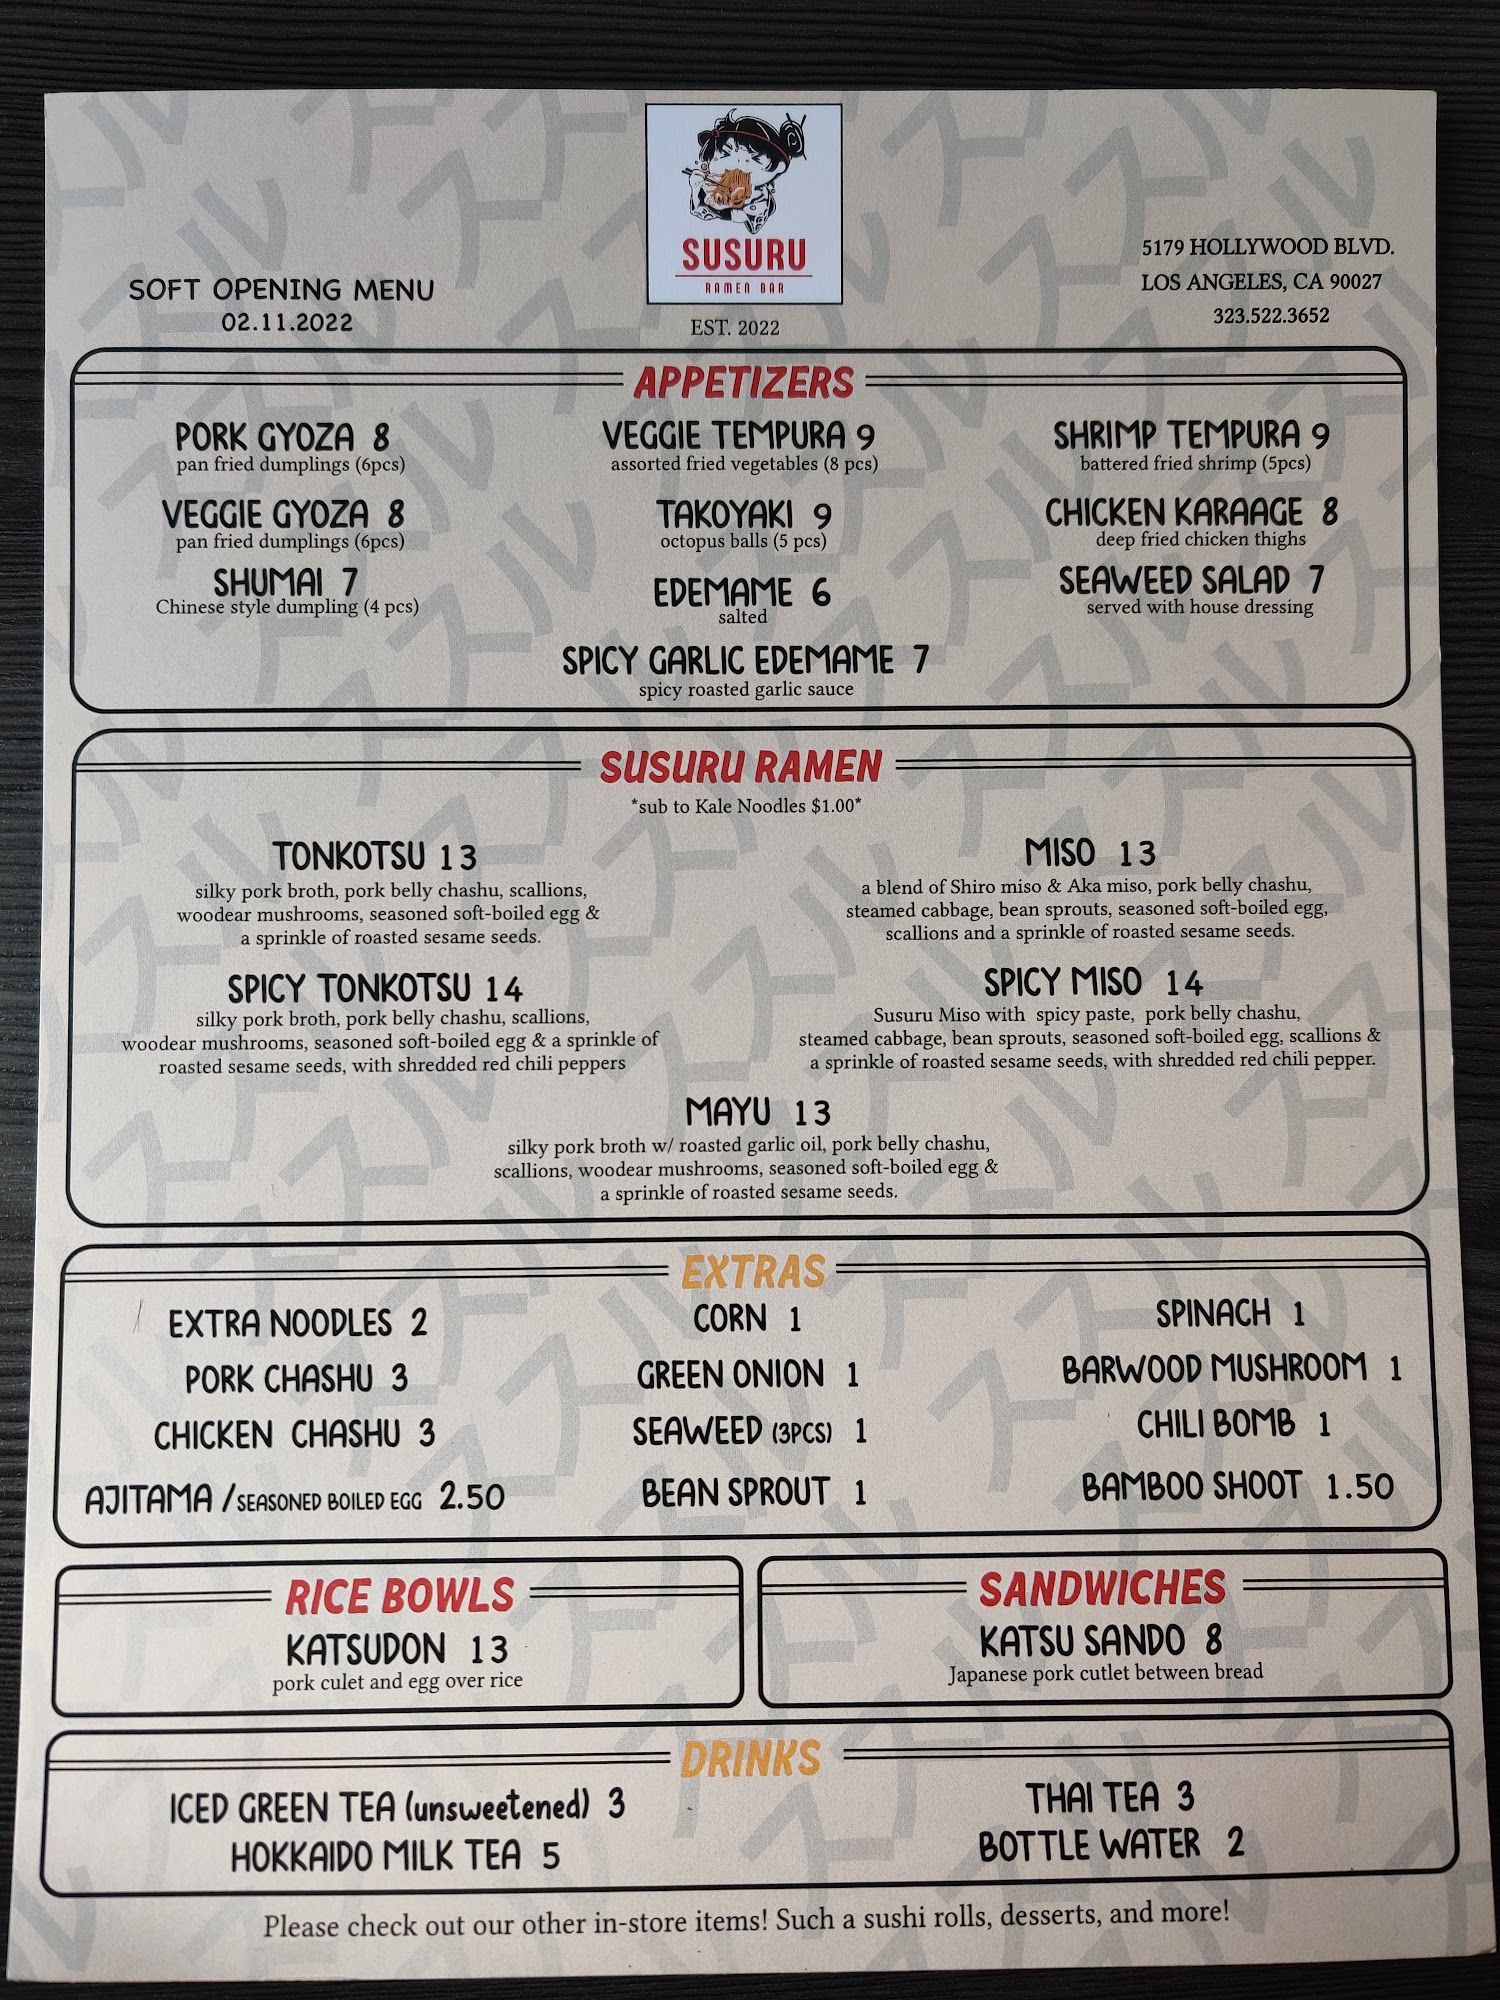 SUSURU
RAMEN BAR
EST. 2022
SOFT OPENING MENU
02.11.2022
5179 HOLLYWOOD BLVD.
LOS ANGELES, CA 90027
323.522.3652
APPETIZERS
PORK GYOZA 8
pan fried dumplings (6pcs)
VEGGIE TEMPURA 9
assorted fried vegetables (8 pcs)
SHRIMP TEMPURA 9
battered fried shrimp (5pcs)
VEGGIE GYOZA 8
pan fried dumplings (6pcs)
TAKOYAKI 9
octopus balls (5 pcs)
CHICKEN KARAAGE 8
deep fried chicken thighs
SHUMAI 7
Chinese style dumpling (4 pcs)
EDEMAME 6
salted
SEAWEED SALAD 7
served with house dressing
SPICY GARLIC EDEMAME 7
spicy roasted garlic sauce
SUSURU RAMEN
*sub to Kale Noodles $1.00*
TONKOTSU 13
silky pork broth, pork belly chashu, scallions,
woodear mushrooms, seasoned soft-boiled egg &
a sprinkle of roasted sesame seeds.
MISO 13
a blend of Shiro miso & Aka miso, pork belly chashu,
steamed cabbage, bean sprouts, seasoned soft-boiled egg,
scallions and a sprinkle of roasted sesame seeds.
SPICY TONKOTSU 14
silky pork broth, pork belly chashu, scallions,
woodear mushrooms, seasoned soft-boiled egg & a sprinkle of
roasted sesame seeds, with shredded red chili peppers
SPICY MISO 14
Susuru Miso with spicy paste, pork belly chashu,
steamed cabbage, bean sprouts, seasoned soft-boiled egg, scallions &
a sprinkle of roasted sesame seeds, with shredded red chili pepper.
MAYU 13
silky pork broth w/ roasted garlic oil, pork belly chashu,
scallions, woodear mushrooms, seasoned soft-boiled egg &
a sprinkle of roasted sesame seeds.
EXTRAS
EXTRA NOODLES 2
CORN 1
SPINACH 1
PORK CHASHU 3
GREEN ONION 1
BARWOOD MUSHROOM 1
CHICKEN CHASHU 3
SEAWEED (3PCS) 1
CHILI BOMB 1
AJITAMA /SEASONED BOILED EGG 2.50
BEAN SPROUT 1
BAMBOO SHOOT 1.50
RICE BOWLS
KATSUDON 13
pork culet and egg over rice
SANDWICHES
KATSU SANDO 8
Japanese pork cutlet between bread
DRINKS
ICED GREEN TEA (unsweetened) 3
THAI TEA 3
HOKKAIDO MILK TEA 5
BOTTLE WATER 2
Please check out our other in-store items! Such a sushi rolls, desserts, and more!